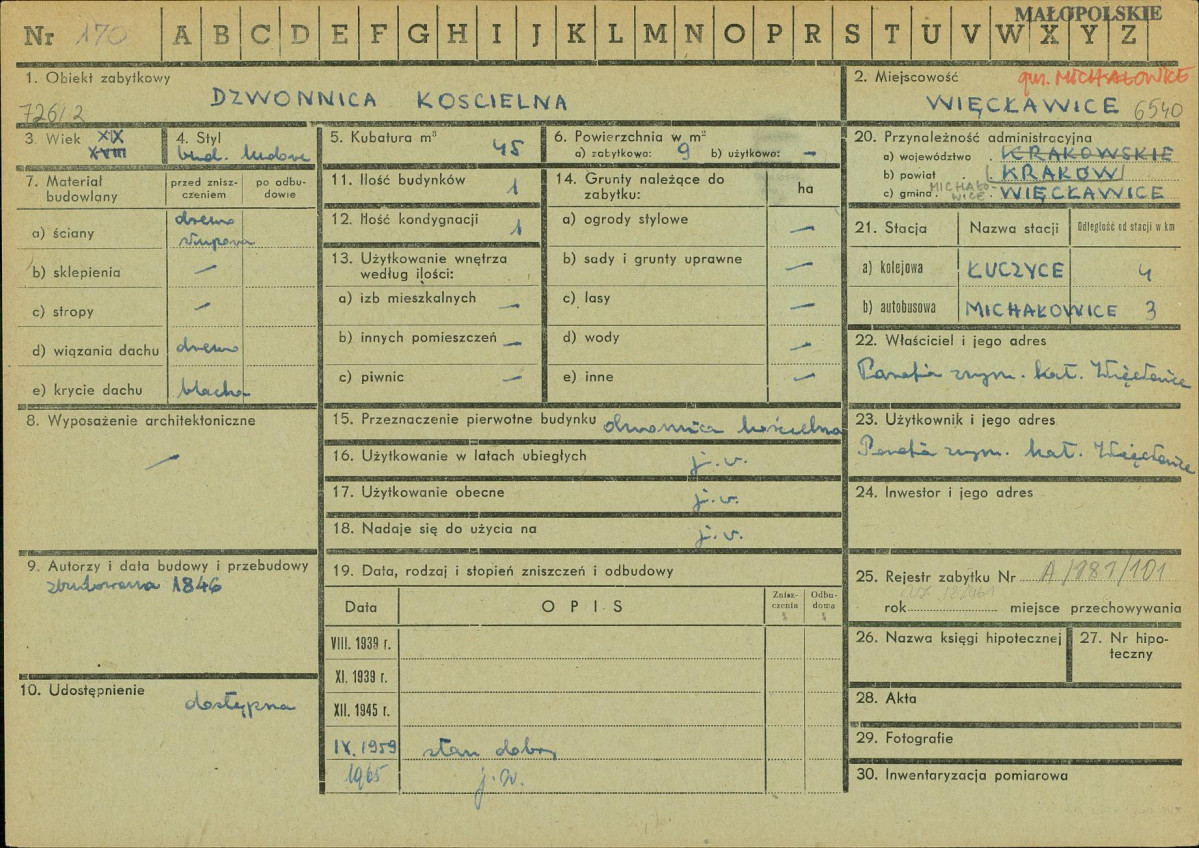 MAŁOPOLSKIE
Nr 170 A B C D E F G H I J K L M N O P R S T U V W X Y Z
1. Obiekt zabytkowy
DZWONNICA KOSCIELNA
726/2
2. Miejscowość gm. MICHAŁOWICE
WIĘCŁAWICE 6540
3. Wiek XIX
XVIII
4. Styl
bud. ludowe
5. Kubatura m³ 45
6. Powierzchnia w m²
a) zabytkowa: 9 b) użytkowa: —
7. Materiał budowlany
przed znisz-
czeniem
po odbu-
dowie
a) ściany drewno
słupowa
b) sklepienia —
c) stropy —
d) wiązania dachu drewno
e) krycie dachu blacha
8. Wyposażenie architektoniczne
—
9. Autorzy i data budowy i przebudowy
zbudowana 1846
10. Udostępnienie
dostępna
11. Ilość budynków 1
12. Ilość kondygnacji 1
13. Użytkowanie wnętrza
według ilości:
a) izb mieszkalnych —
b) innych pomieszczeń —
c) piwnic —
14. Grunty należące do
zabytku: ha
a) ogrody stylowe —
b) sady i grunty uprawne —
c) lasy —
d) wody —
e) inne —
15. Przeznaczenie pierwotne budynku dzwonnica kościelna
16. Użytkowanie w latach ubiegłych j.w.
17. Użytkowanie obecne j.w.
18. Nadaje się do użycia na j.w.
19. Data, rodzaj i stopień zniszczeń i odbudowy
Data OPIS
Znisz-
czenia
%
Odbu-
dowa
%
VIII. 1939 r.
XI. 1939 r.
XII. 1945 r.
IX. 1959 stan dobry
1965 j.w.
20. Przynależność administracyjna
a) województwo KRAKOWSKIE
b) powiat KRAKÓW
c) gmina MICHAŁO-
WICE WIĘCŁAWICE
21. Stacja Nazwa stacji Odległość od stacji w km
a) kolejowa ŁUCZYCE 4
b) autobusowa MICHAŁOWICE 3
22. Właściciel i jego adres
Parafia rzym. kat. Więcławice
23. Użytkownik i jego adres
Parafia rzym. kat. Więcławice
24. Inwestor i jego adres
25. Rejestr zabytku Nr A/181/101
rok miejsce przechowywania
26. Nazwa księgi hipotecznej
27. Nr hipo-
teczny
28. Akta
29. Fotografie
30. Inwentaryzacja pomiarowa